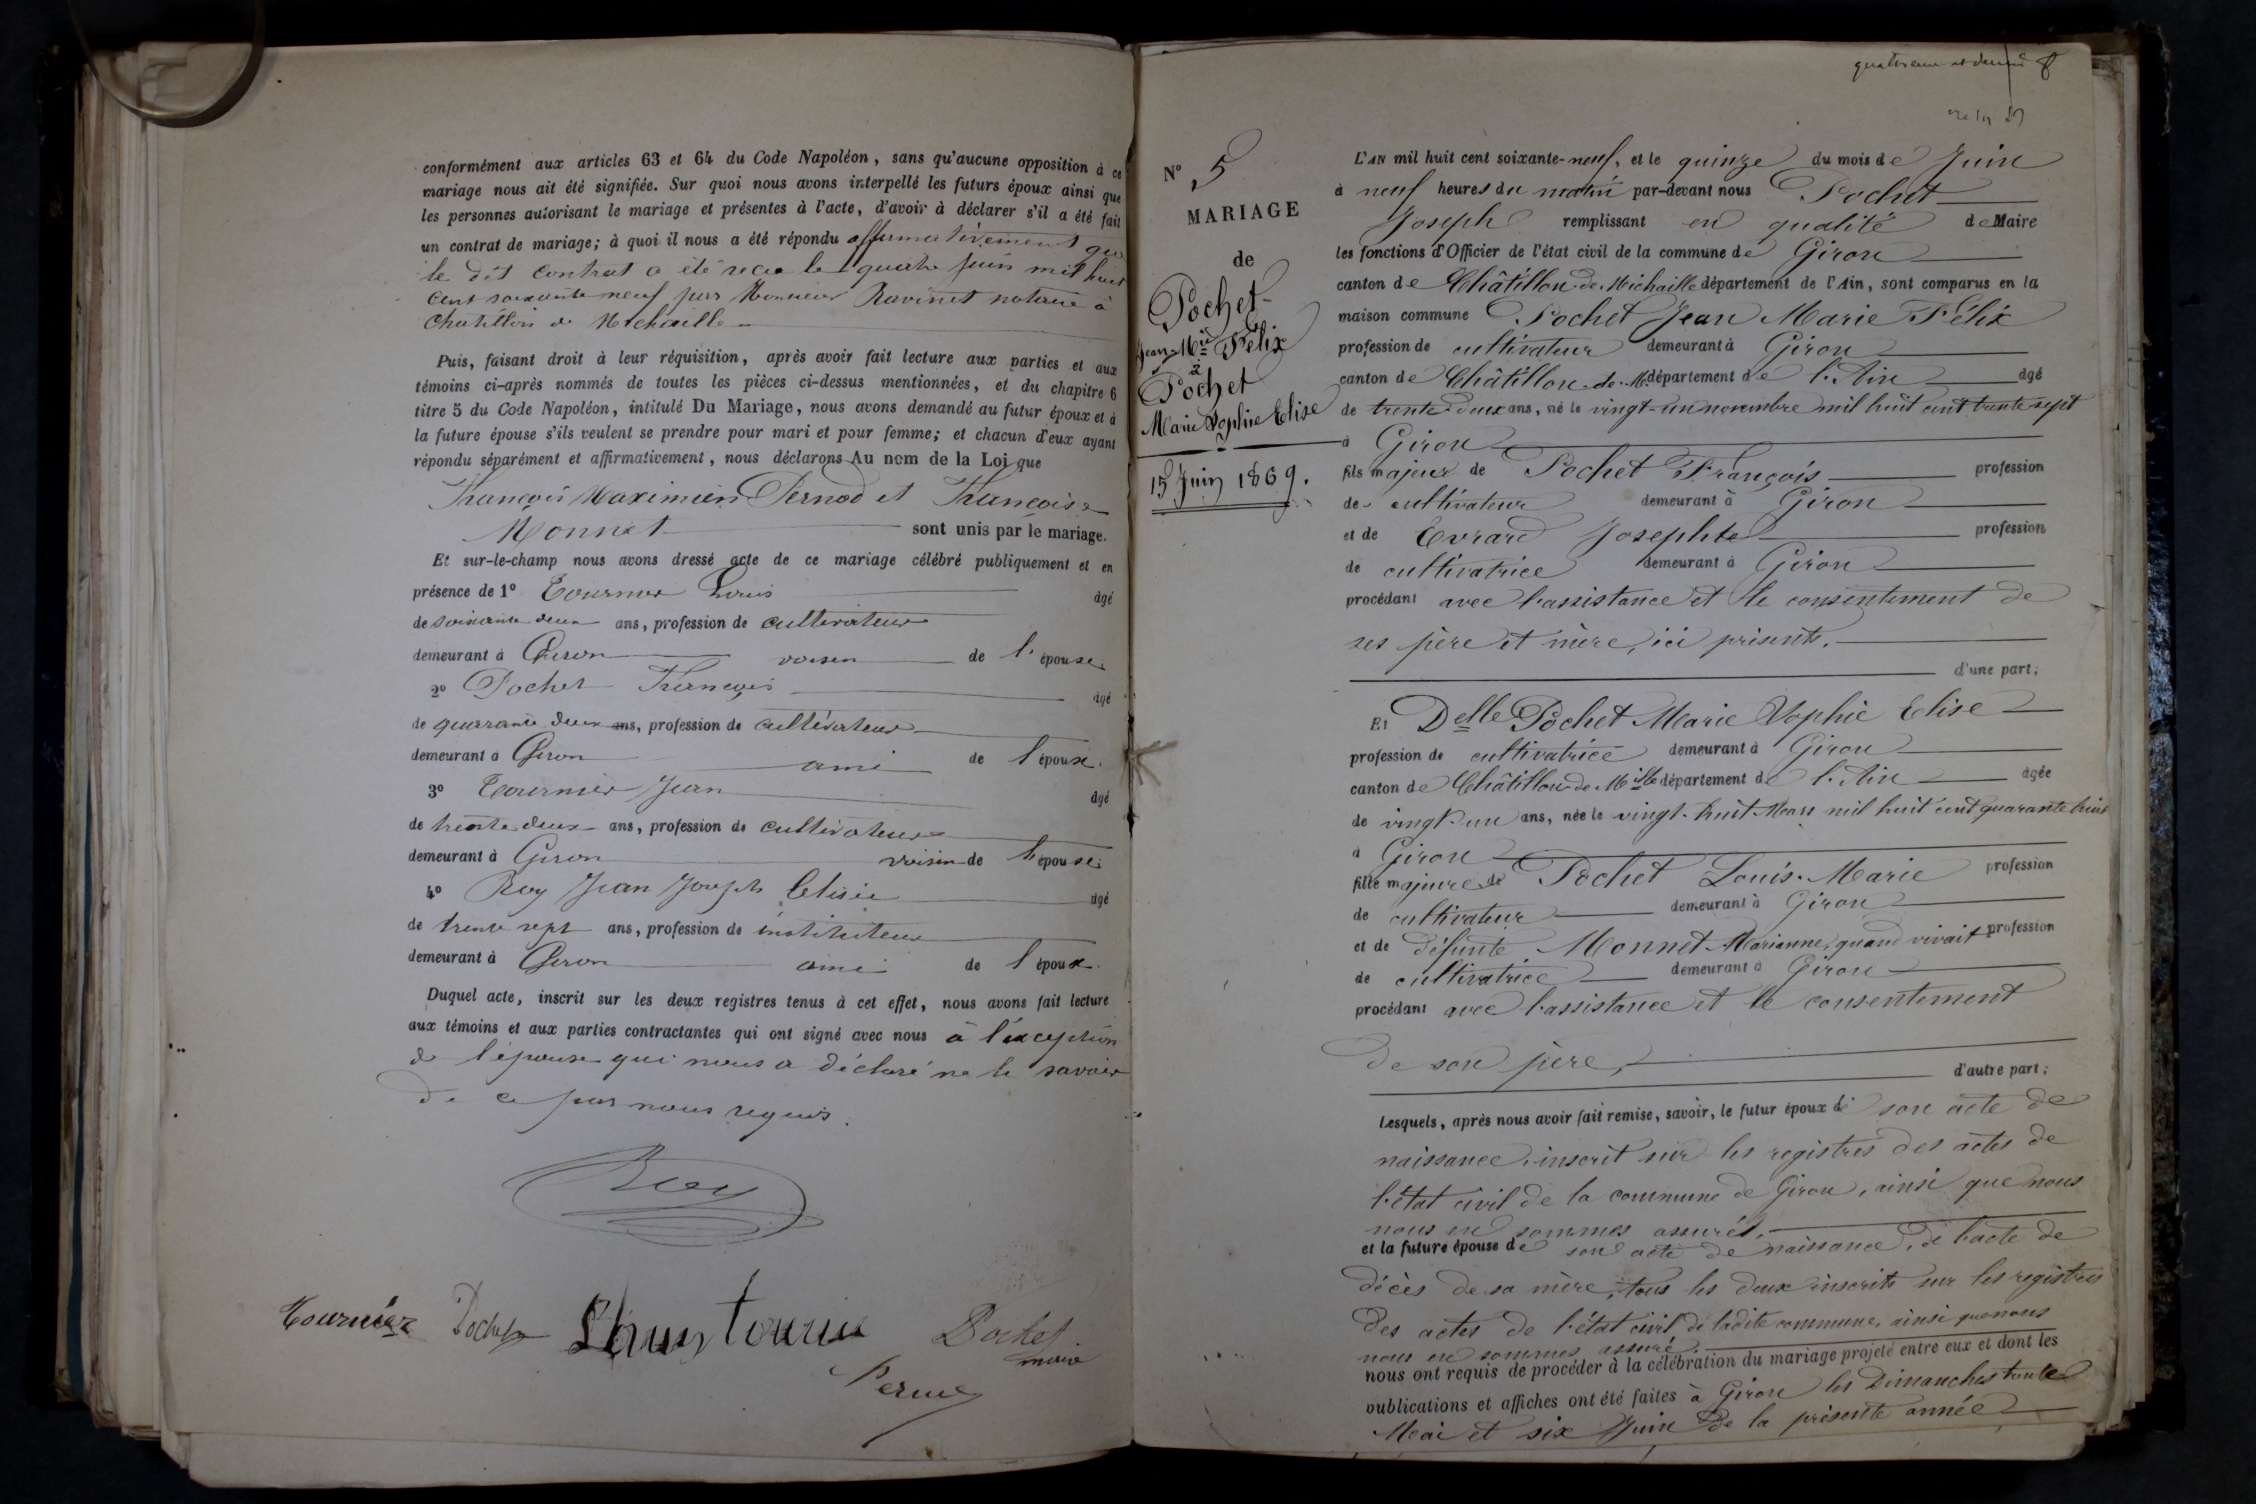 conformément aux articles 63 et 64 du Code Napoléon, sans qu'aucune opposition à ce
mariage nous ait été signifiée. Sur quoi nous avons interpellé les futurs époux ainsi que
les personnes autorisant le mariage et présentes à l'acte, d'avoir à déclarer s'il a été fait
un contrat de mariage; à quoi il nous a été répondu affirmativement que
le dit contrat a été recu le quatre juin mil huit
cent soixante neuf par Monsieur Ravinet notaire à
Chatillon de Michaille
Puis, faisant droit à leur réquisition, après avoir fait lecture aux parties et aux
témoins ci-après nommés de toutes les pièces ci-dessus mentionnées, et du chapitre 6
titre 5 du Code Napoléon, intitulé Du Mariage, nous avons demandé au futur époux et à
la future épouse s'ils veulent se prendre pour mari et pour femme; et chacun d'eux ayant
répondu séparément et affirmativement, nous déclarons Au nom de la Loi que
François Maximien Pernod et Françoise
Monnet sont unis par le mariage.
Et sur-le-champ nous avons dressé acte de ce mariage célébré publiquement et en
présence de 1° Tournier Louis âgé
de soixante deux ans, profession de cultivateur
demeurant à Giron voisin de l'épouse
2° Pochet François âgé
de quarante deux ans, profession de cultivateur
demeurant à Giron ami de l'épouse.
3° Tournier Jean âgé
de trente deux ans, profession de cultivateur
demeurant à Giron voisin de l'épouse
4° Roy Jean Joseph Elisée âgé
de trente sept ans, profession de instituteur
demeurant à Giron ami de l'époux.
Duquel acte, inscrit sur les deux registres tenus à cet effet, nous avons fait lecture
aux témoins et aux parties contractantes qui ont signé avec nous à l'exception
de l'épouse qui nous a déclaré ne le savoir
de ce par nous requis.
Roy
Tournier Pochet Tournier Pochet
maire
N° 5
MARIAGE
de
Pochet
Jean-Mie Félix
à
Pochet
Marie Sophie Elise
15 Juin 1869.
L'AN mil huit cent soixante-neuf, et le quinze du mois de Juin
à neuf heures du matin par-devant nous Pochet
Joseph remplissant en qualité de Maire
les fonctions d'Officier de l'état civil de la commune de Giron
canton de Châtillon-de-Michaille département de l'Ain, sont comparus en la
maison commune Pochet Jean Marie Félix
profession de cultivateur demeurant à Giron
canton de Châtillon-de-M. département de l'Ain âgé
de trente-deux ans, né le vingt-un novembre mil huit cent trente sept
à Giron
fils majeur de Pochet François profession
de cultivateur demeurant à Giron
et de Evrard Josephte profession
de cultivatrice demeurant à Giron
procédant avec l'assistance et le consentement de
ses père et mère, ici présents.
d'une part;
Et Delle Pochet Marie Sophie Elise
profession de cultivatrice demeurant à Giron
canton de Châtillon-de-Mille département de l'Ain âgée
de vingt-un ans, née le vingt-huit Mars mil huit cent quarante huit
à Giron
fille majeure de Pochet Louis-Marie profession
de cultivateur demeurant à Giron
et de défunte Monnet Marianne, quand vivait profession
de cultivatrice demeurant à Giron
procédant avec l'assistance et le consentement
de son père,
d'autre part;
Lesquels, après nous avoir fait remise, savoir, le futur époux d son acte de
naissance, inscrit sur les registres des actes de
l'état civil de la commune de Giron, ainsi que nous
nous en sommes assurés.
et la future épouse de son acte de naissance, de l'acte de
décès de sa mère, tous les deux inscrits sur les registres
des actes de l'état civil de ladite commune, ainsi que nous
nous en sommes assuré.
nous ont requis de procéder à la célébration du mariage projeté entre eux et dont les
publications et affiches ont été faites à Giron les Dimanches trente
Mai et six Juin de la présente année